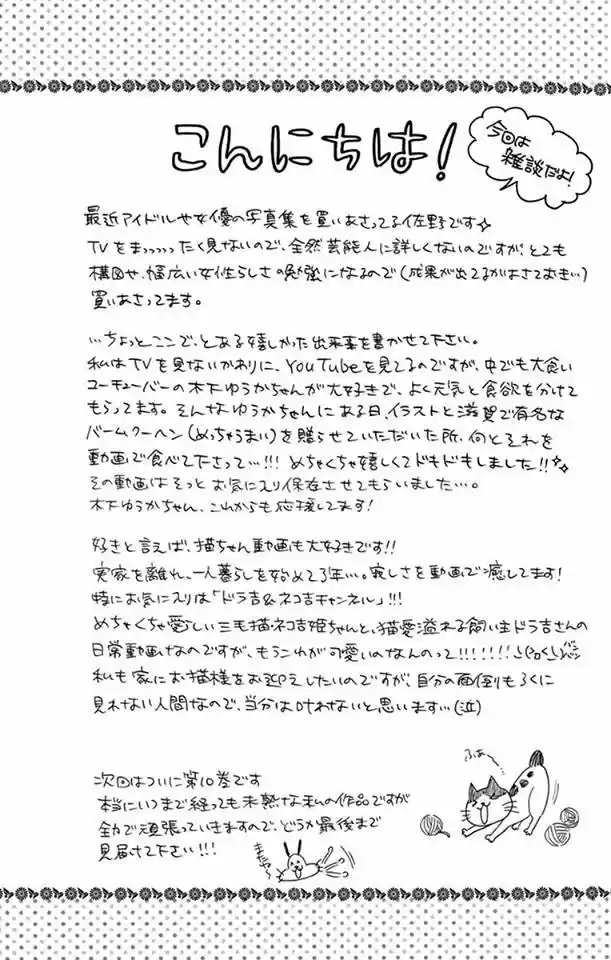 こんにちは!
今回は
雑談だよ!
最近アイドルや女優の写真集を買いあさってる佐野です☆
TVをまっっっったく見ないので、全然芸能人に詳しくないのですが、とても
構図や、幅広い女性らしさの勉強になるので(成果が出てるかはさておき…)
買いあさってます。
…ちょっとここで、とある嬉しかった出来事を書かせて下さい。
私はTVを見ないかわりに、YouTubeを見てるのですが、中でも大食い
ユーチューバーの木下ゆうかちゃんが大好きで、よく元気と食欲を分けて
もらってます。そんなゆうかちゃんにある日、イラストと滋賀で有名な
バームクーヘン(めっちゃうまい)を贈らせていただいた所、何とそれを
動画で食べて下さって…!!! めちゃくちゃ嬉しくてドキドキしました!!☆
その動画はそっとお気に入り保存させてもらいました…。
木下ゆうかちゃん、これからも応援してます!
好きと言えば、猫ちゃん動画も大好きです!!
実家を離れ、一人暮らしを始めて3年…。寂しさを動画で癒してます!
特にお気に入りは「ドラ吉&ネコ吉チャンネル」!!!
めちゃくちゃ愛らしい三毛猫ネコ吉姫ちゃんと、猫愛溢れる飼い主ドラ吉さんの
日常動画なのですが、もうこれが可愛いのなんのって!!!!!!!
私も家にお猫様をお迎えしたいのですが、自分の面倒もろくに
見れない人間なので、当分は叶わないと思います…(泣)
次回はついに第10巻です
本当にいつまで経っても未熟な私の作品ですが
全力で頑張っていきますので、どうか最後まで
見届けて下さい!!!
ふぁ〜